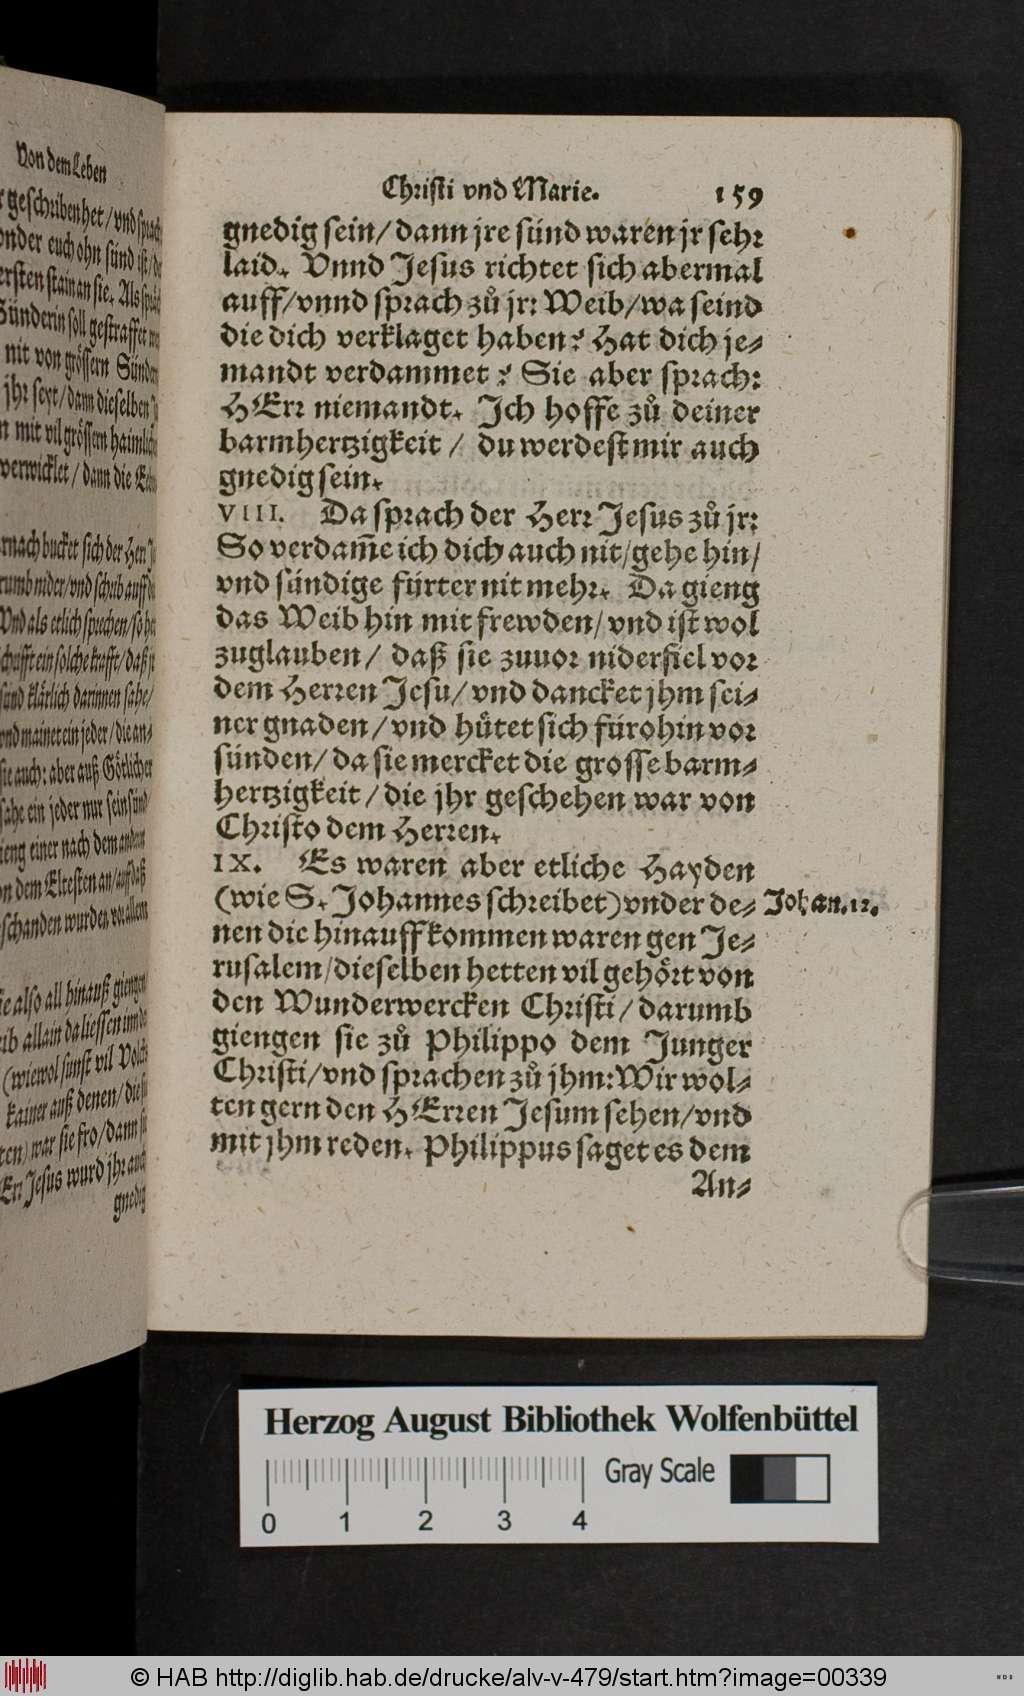 Von dem Leben
geschriben het / vnd sprach
onder euch ohn sünd ist / der
ersten stain an sie. Als spräch
Sünderin soll gestraffet wer
nit von grössern Sündern
jhr seyt / dann dieselben
mit vil grössern haimlichen
verwicklet / dann die
bucket sich der Herr
nider / vnd schrib auff die
Vnd als etlich sprechen / so het
ein solche krafft / daß
sünd klärlich darinnen sahe /
vnd mainet ein jeder / die an⸗
sie auch: aber auß Götlicher
sahe ein jeder nur sein sünd
gieng einer nach dem andern
von dem Eltesten an / auff daß
schanden wurden vor allem
also all hinauß giengen
allain da liessen
(wiewol sunst vil Volcks
kainer auß denen / die
war sie fro / dann
Jesus wurd jhr auch
gnedig
Christi vnd Marie. 159
gnedig sein / dann jre sünd waren jr sehr
laid. Vnnd Jesus richtet sich abermal
auff / vnnd sprach zů jr: Weib / wa seind
die dich verklaget haben? Hat dich je⸗
mandt verdammet? Sie aber sprach:
HErr niemandt. Ich hoffe zů deiner
barmhertzigkeit / du werdest mir auch
gnedig sein.
VIII. Da sprach der Herr Jesus zů jr:
So verdam̃e ich dich auch nit / gehe hin /
vnd sündige fürter nit mehr. Da gieng
das Weib hin mit frewden / vnd ist wol
zuglauben / daß sie zuuor niderfiel vor
dem Herren Jesu / vnd dancket jhm sei⸗
ner gnaden / vnd hůtet sich fürohin vor
sünden / da sie mercket die grosse barm⸗
hertzigkeit / die jhr geschehen war von
Christo dem Herren.
IX. Es waren aber etliche Hayden
(wie S. Johannes schreibet) vnder de⸗ Johan. 12.
nen die hinauff kommen waren gen Je⸗
rusalem / dieselben hetten vil gehört von
den Wunderwercken Christi / darumb
giengen sie zů Philippo dem Junger
Christi / vnd sprachen zů jhm: Wir wol⸗
ten gern den HErren Jesum sehen / vnd
mit jhm reden. Philippus saget es dem
An⸗
Herzog August Bibliothek Wolfenbüttel
Gray Scale
0 1 2 3 4
© HAB http://diglib.hab.de/drucke/alv-v-479/start.htm?image=00339